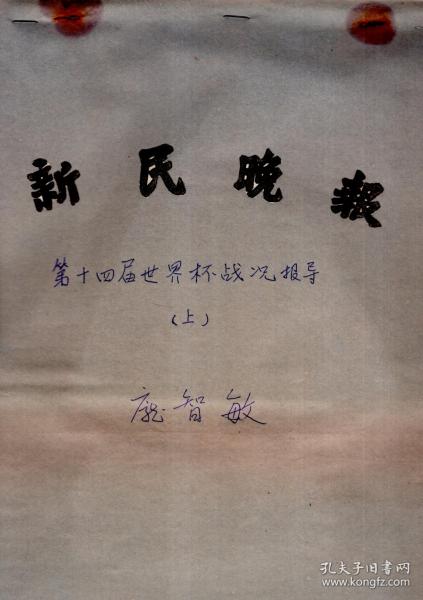 新民晚报
第十四届世界杯战况报导
（上）
庞智敏
孔夫子旧书网
www.kongfz.com